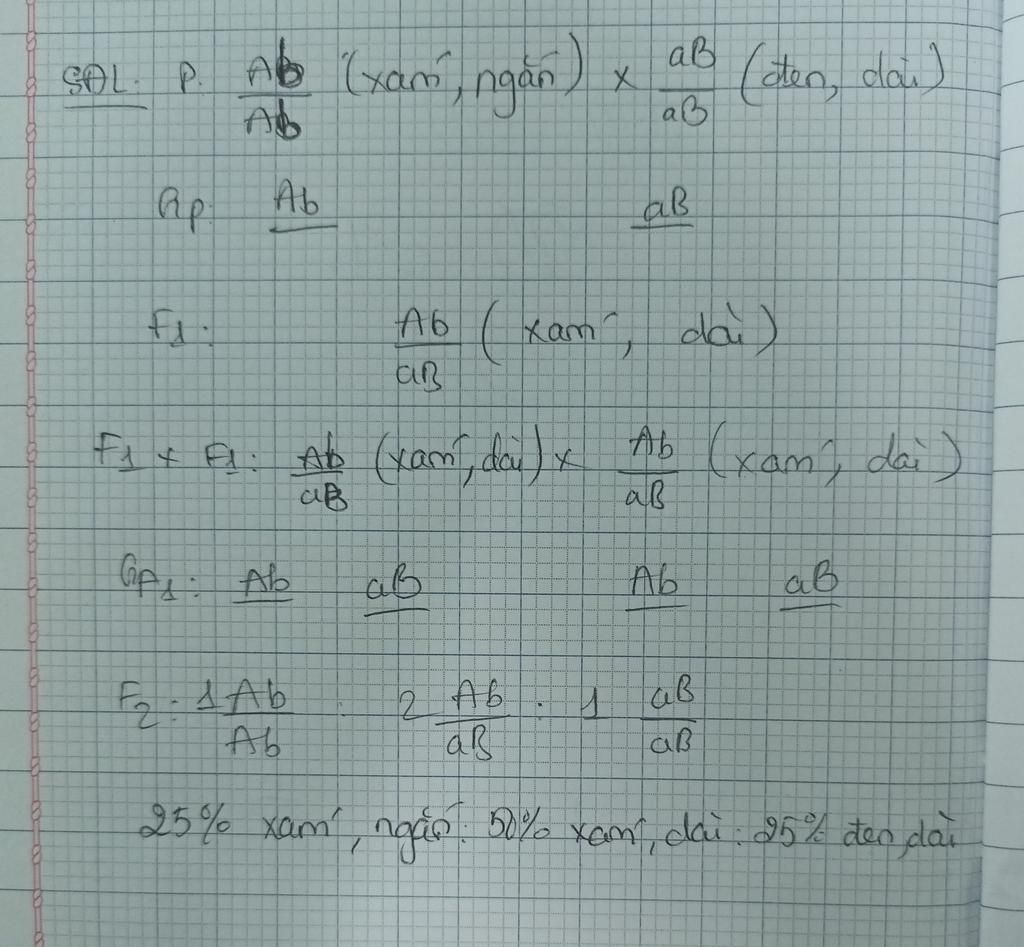 SĐL: P. Ab/Ab (xám, ngắn) × aB/aB (đen, dài)
Gp: Ab aB
F1: Ab/aB (xám, dài)
F1 × F1: Ab/aB (xám, dài) × Ab/aB (xám, dài)
GF1: Ab aB Ab aB
F2: 1 Ab/Ab : 2 Ab/aB : 1 aB/aB
25% xám, ngắn: 50% xám, dài: 25% đen, dài